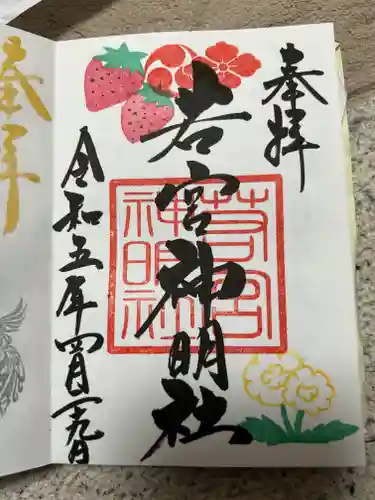 奉拝
若宮神明社
若宮
神明社
令和五年四月二十九日
奉拝